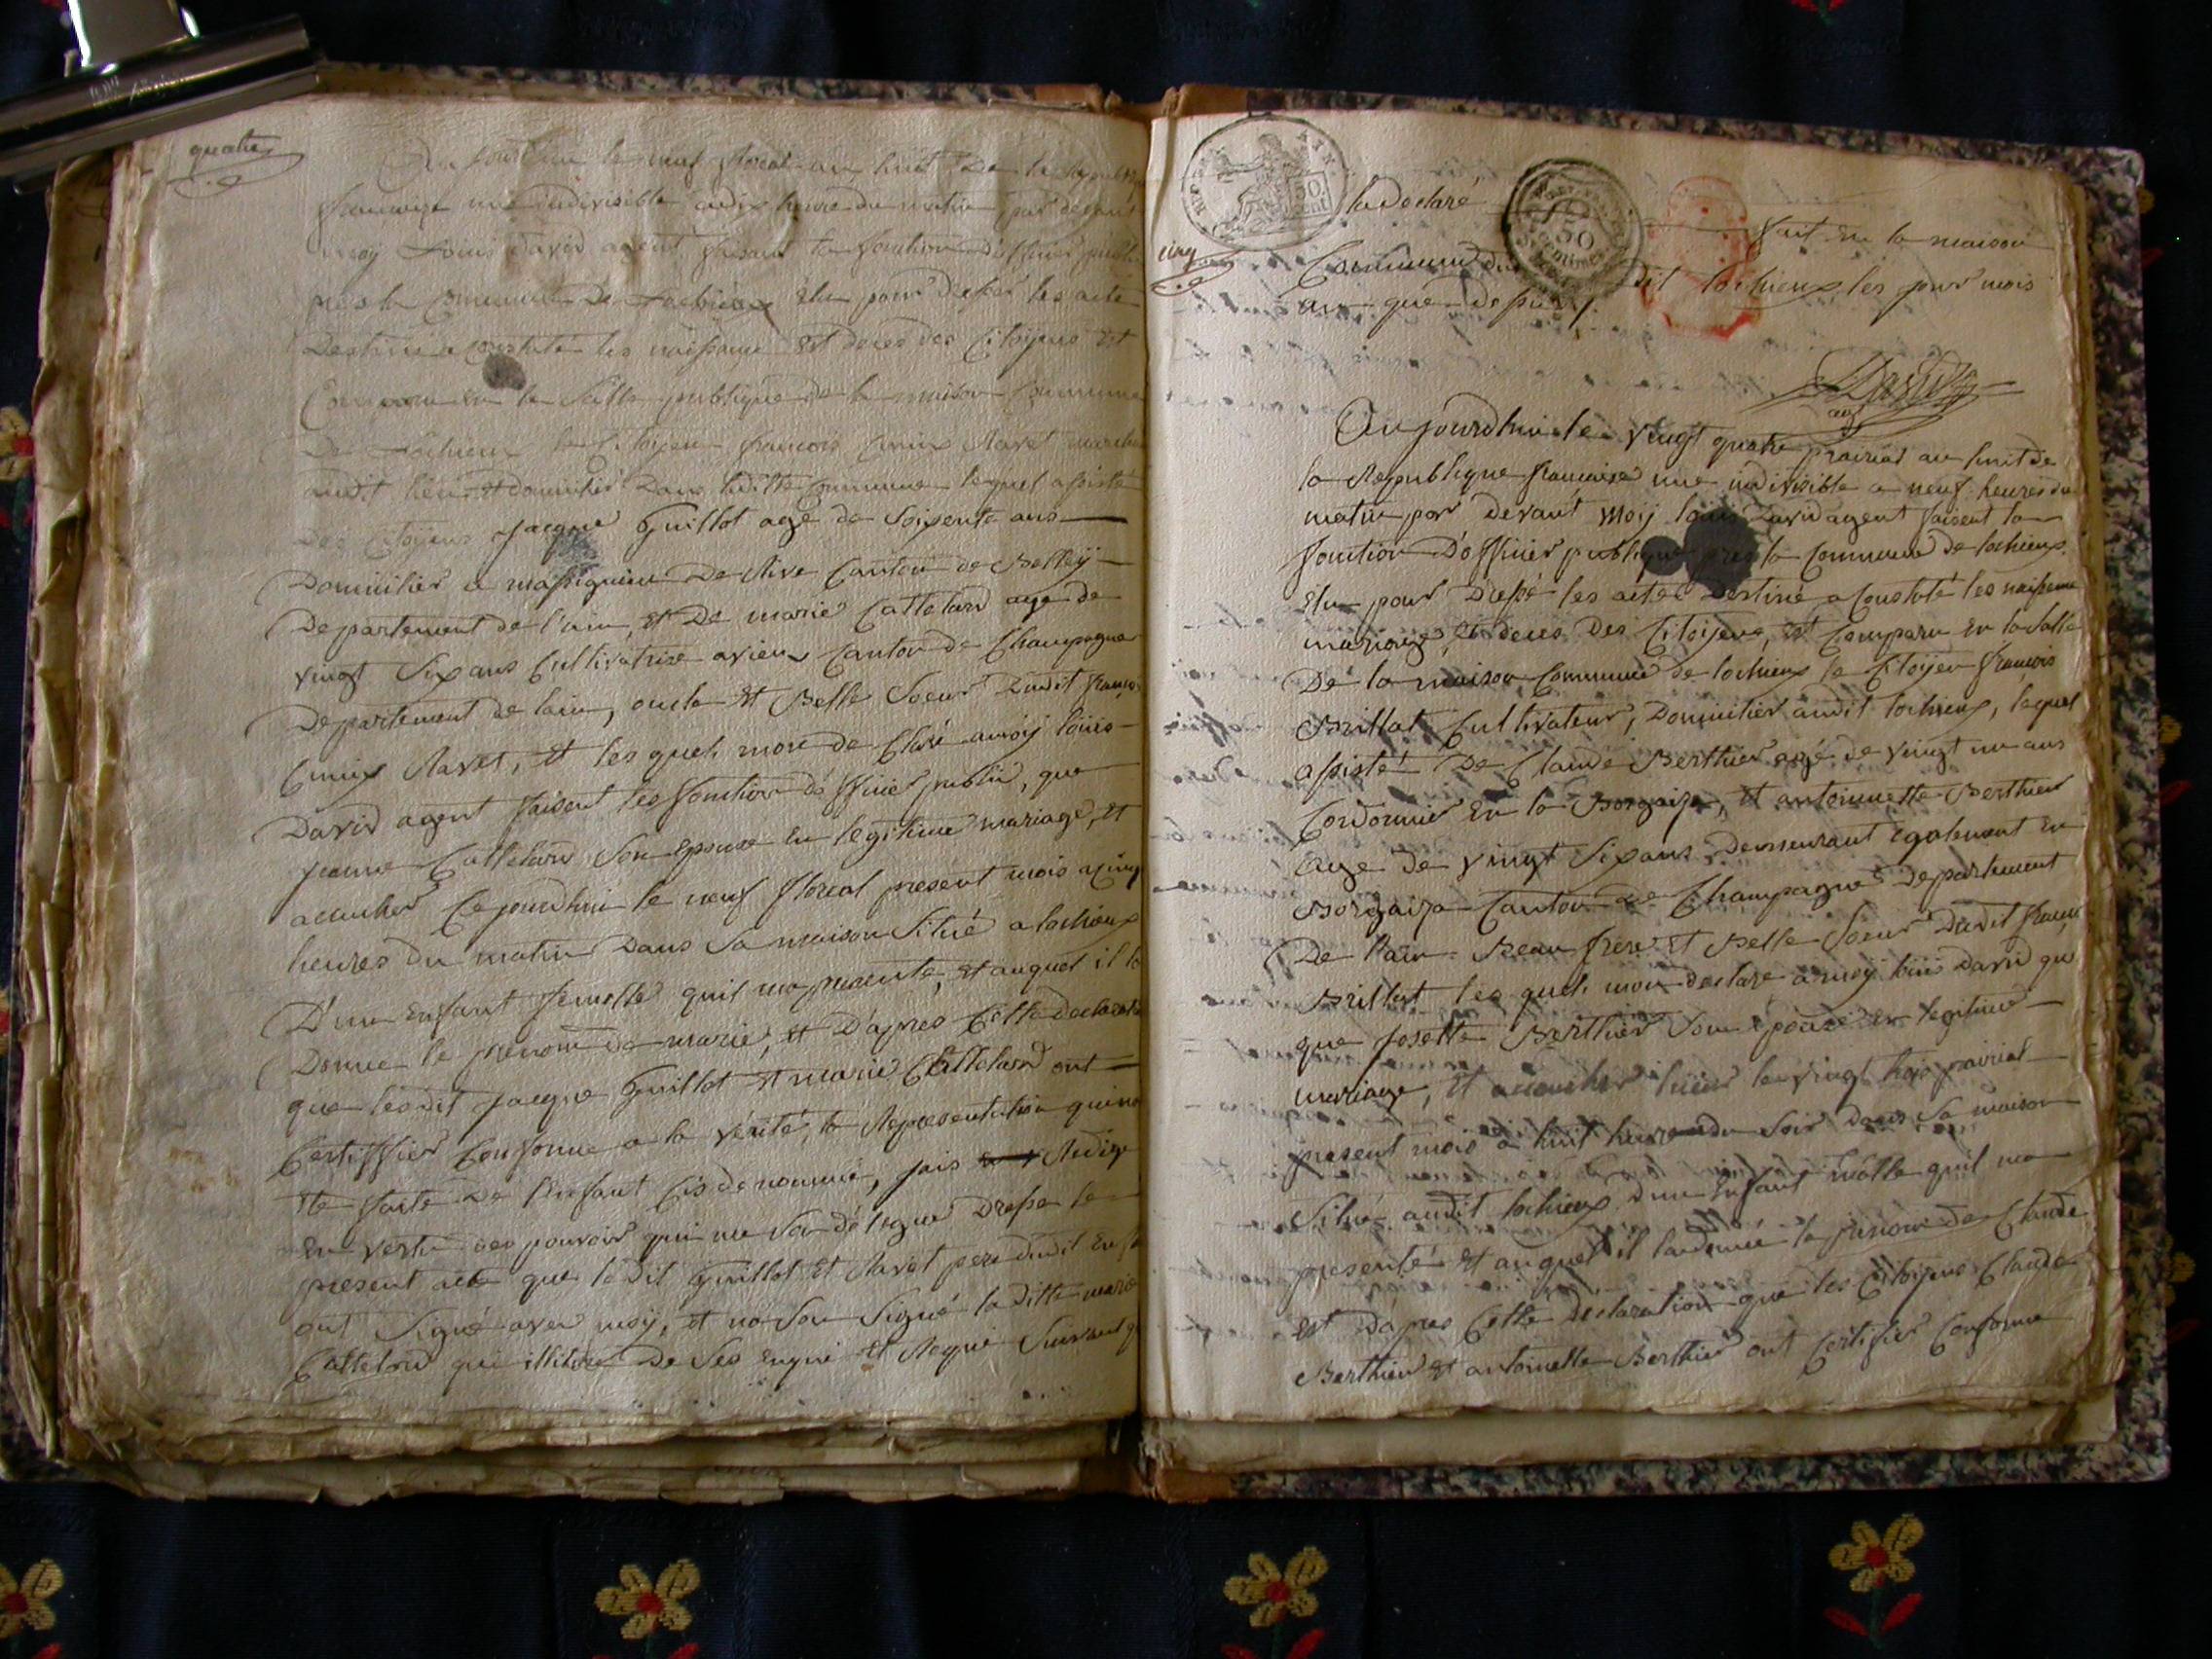 quatre
Aujourdhui le neuf floreal an huit De la Republique
francaise une indivisible a dix heure du matin par devant
moy Louis David agent faisant la fonction d'officier public
pres la Commune De Lochieux Elu pour Dresser les acte
Destiné a Constaté les naissance Et deces des Citoyens Est
Comparu En la Salle publique de la maison Commune
De Lochieux le Citoyen francois Ravet
audit lieu et domicilier Dans laditte Commune lequel assisté
Des Citoyens Jacque Guillot age de Soixente ans
Domicilier a massignieu De Rive Canton de Belley
Departement de l'ain, et De marie Cattelard age de
vingt Six ans Cultivatrise a vieux Canton de Champagne
Departement de lain, oncle Et Belle Soeur Dudit françois
Ravet, Et les quels mon de Claré a moy louis
David agent faisent les fonction d'officier public, que
jeanne Cattelard Son Epouse En legitime mariage, et
acoucher Ce jourdhui le neuf floreal present mois a cinq
heures du matin Dans Sa maison Situé a lochieux
D'un Enfant femelle quil ma presenté, et auquel il la
Donne le prenom de marie, et D'apres Cette declaration
que lesdit jacque Guillot et marie Cattelard ont
Certiffier Conforme a la vérité, la Representation qui ma
Ete faite De l'Enfant Cis denommé, jais Redigé
En vertu des pouvoir qui me Son délegué Dresse le
present acte que le dit Guillot et Ravet pere dudit Enfant
ont Signé avec moy, et non Son Signé la ditte marie
Cattelard qui illitere De Ses enqui et Requi Suivant
30
cent
la Declaré
50
fait En la maison
cinq
Commune du dit lochieux les jour mois
an que dessus
David
agt
Aujourdhui le vingt quatre prairial an huit de
la Republique francaise une indivisible a neuf heures du
matin par devant Moy louis David agent faisent la
fonction D'officier publique pres la Commune de lochieux
Elu pour Dressé les actes Destiné a Constaté les naissance
mariage, et deces Des Citoyens, Est Comparu En la Salle
De la maison Commune de lochieux le Citoyen françois
Brillat Cultivateur, Domicilier audit lochieux, lequel
assisté De Claude Berthier agé de vingt un ans
Cordonnier En la Borgaize, et antoinette Berthier
age de vingt Six ans demeurant egalement En
Borgaize Canton De Champagne Departement
De l'ain Beau frere et Belle Soeur Dudit francois
Brillat les quels mon declare a moy louis David que
que Josette Berthier Son Epouze En legitime
mariage, Et acoucher hier le vingt trois prairial
present mois a huit heure du Soir Dans Sa maison
Situé audit lochieux D'un Enfant malle quil ma
presenté Et auquel il la donné le prenom de Claude
Et D'apres Cette declaration que les Citoyens Claude
Berthier et antoinette Berthier ont Certifier Conforme